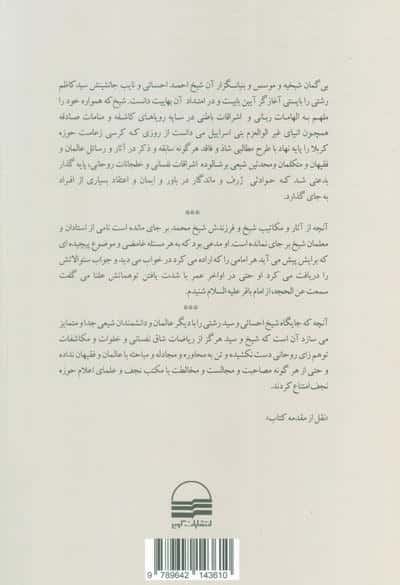 بی‌گمان شیخیه و موسس و بنیانگزار آن شیخ احمد احسائی و نایب جانشینش سید کاظم
رشتی را بایستی آغازگر آیین بابیت و در امتداد آن بهاییت دانست. شیخ که همواره خود را
ملهم به الهامات ربانی و اشراقات باطنی در سایه رویاهای کاشفه و منامات صادقه
همچون انبیای غیر اولو‌العزم بنی اسراییل می دانست از روزی که کرسی زعامت حوزه
کربلا را پایه نهاد با طرح مطالبی شاذ و فاقد هرگونه سابقه و ذکر در آثار و رسائل عالمان و
فقیهان و متکلمان و محدثین شیعی بر شالوده اشراقات نفسانی و خلجانات روحانی، پایه گذار
بدعتی شد که حوادثی ژرف و ماندگار در باور و ایمان و اعتقاد بسیاری از افراد
به جای گذارد.
***
آنچه از آثار و مکاتیب شیخ و فرزندش شیخ محمد بر جای مانده است نامی از استادان و
معلمان شیخ بر جای نمانده است. او مدعی بود که به هر مسئله غامضی و موضوع پیچیده ای
که برایش پیش می آید هر امامی را که اراده می کرد در خواب می دید و جواب سئوالاتش
را دریافت می کرد او حتی در اواخر عمر با شدت یافتن توهماتش علنا می گفت
سمعت عن الحجه، از امام باقر علیه السلام شنیدم.
***
آنچه که جایگاه شیخ احسائی و سید رشتی را با دیگر عالمان و دانشمندان شیعی جدا و متمایز
می سازد آن است که شیخ و سید هرگز از ریاضات شاق نفسانی و خلوات و مکاشفات
توهم زای روحانی دست نکشیده و تن به محاوره و مجادله و مباحثه با عالمان و فقیهان نداده
و حتی از هر گونه مصاحبت و مجالست و مخالطت با مکتب نجف و علمای اعلام حوزه
نجف امتناع کردند.
«نقل از مقدمه کتاب»
انتشارات کویر
9 789642 143610